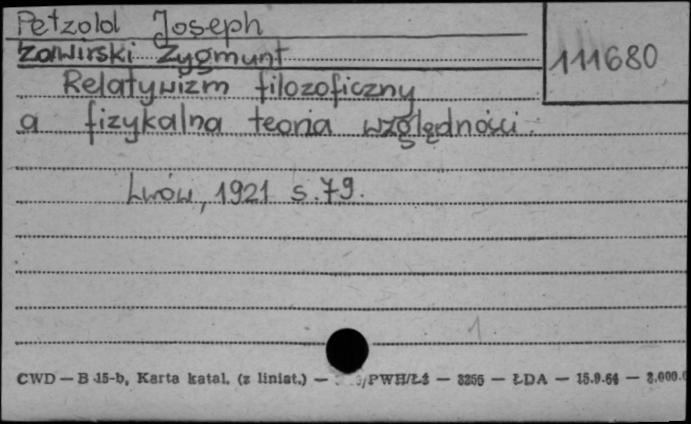 Petzold Joseph
Zawirski Zygmunt
111680
Relatywizm filozoficzny
a fizykalna teoria względności.
Lwów, 1921 s. 79.
1
CWD — B 15-b, Karta katal. (z liniat.) — /PWH/Łź — 3256 — ŁDA — 15.9.64 —